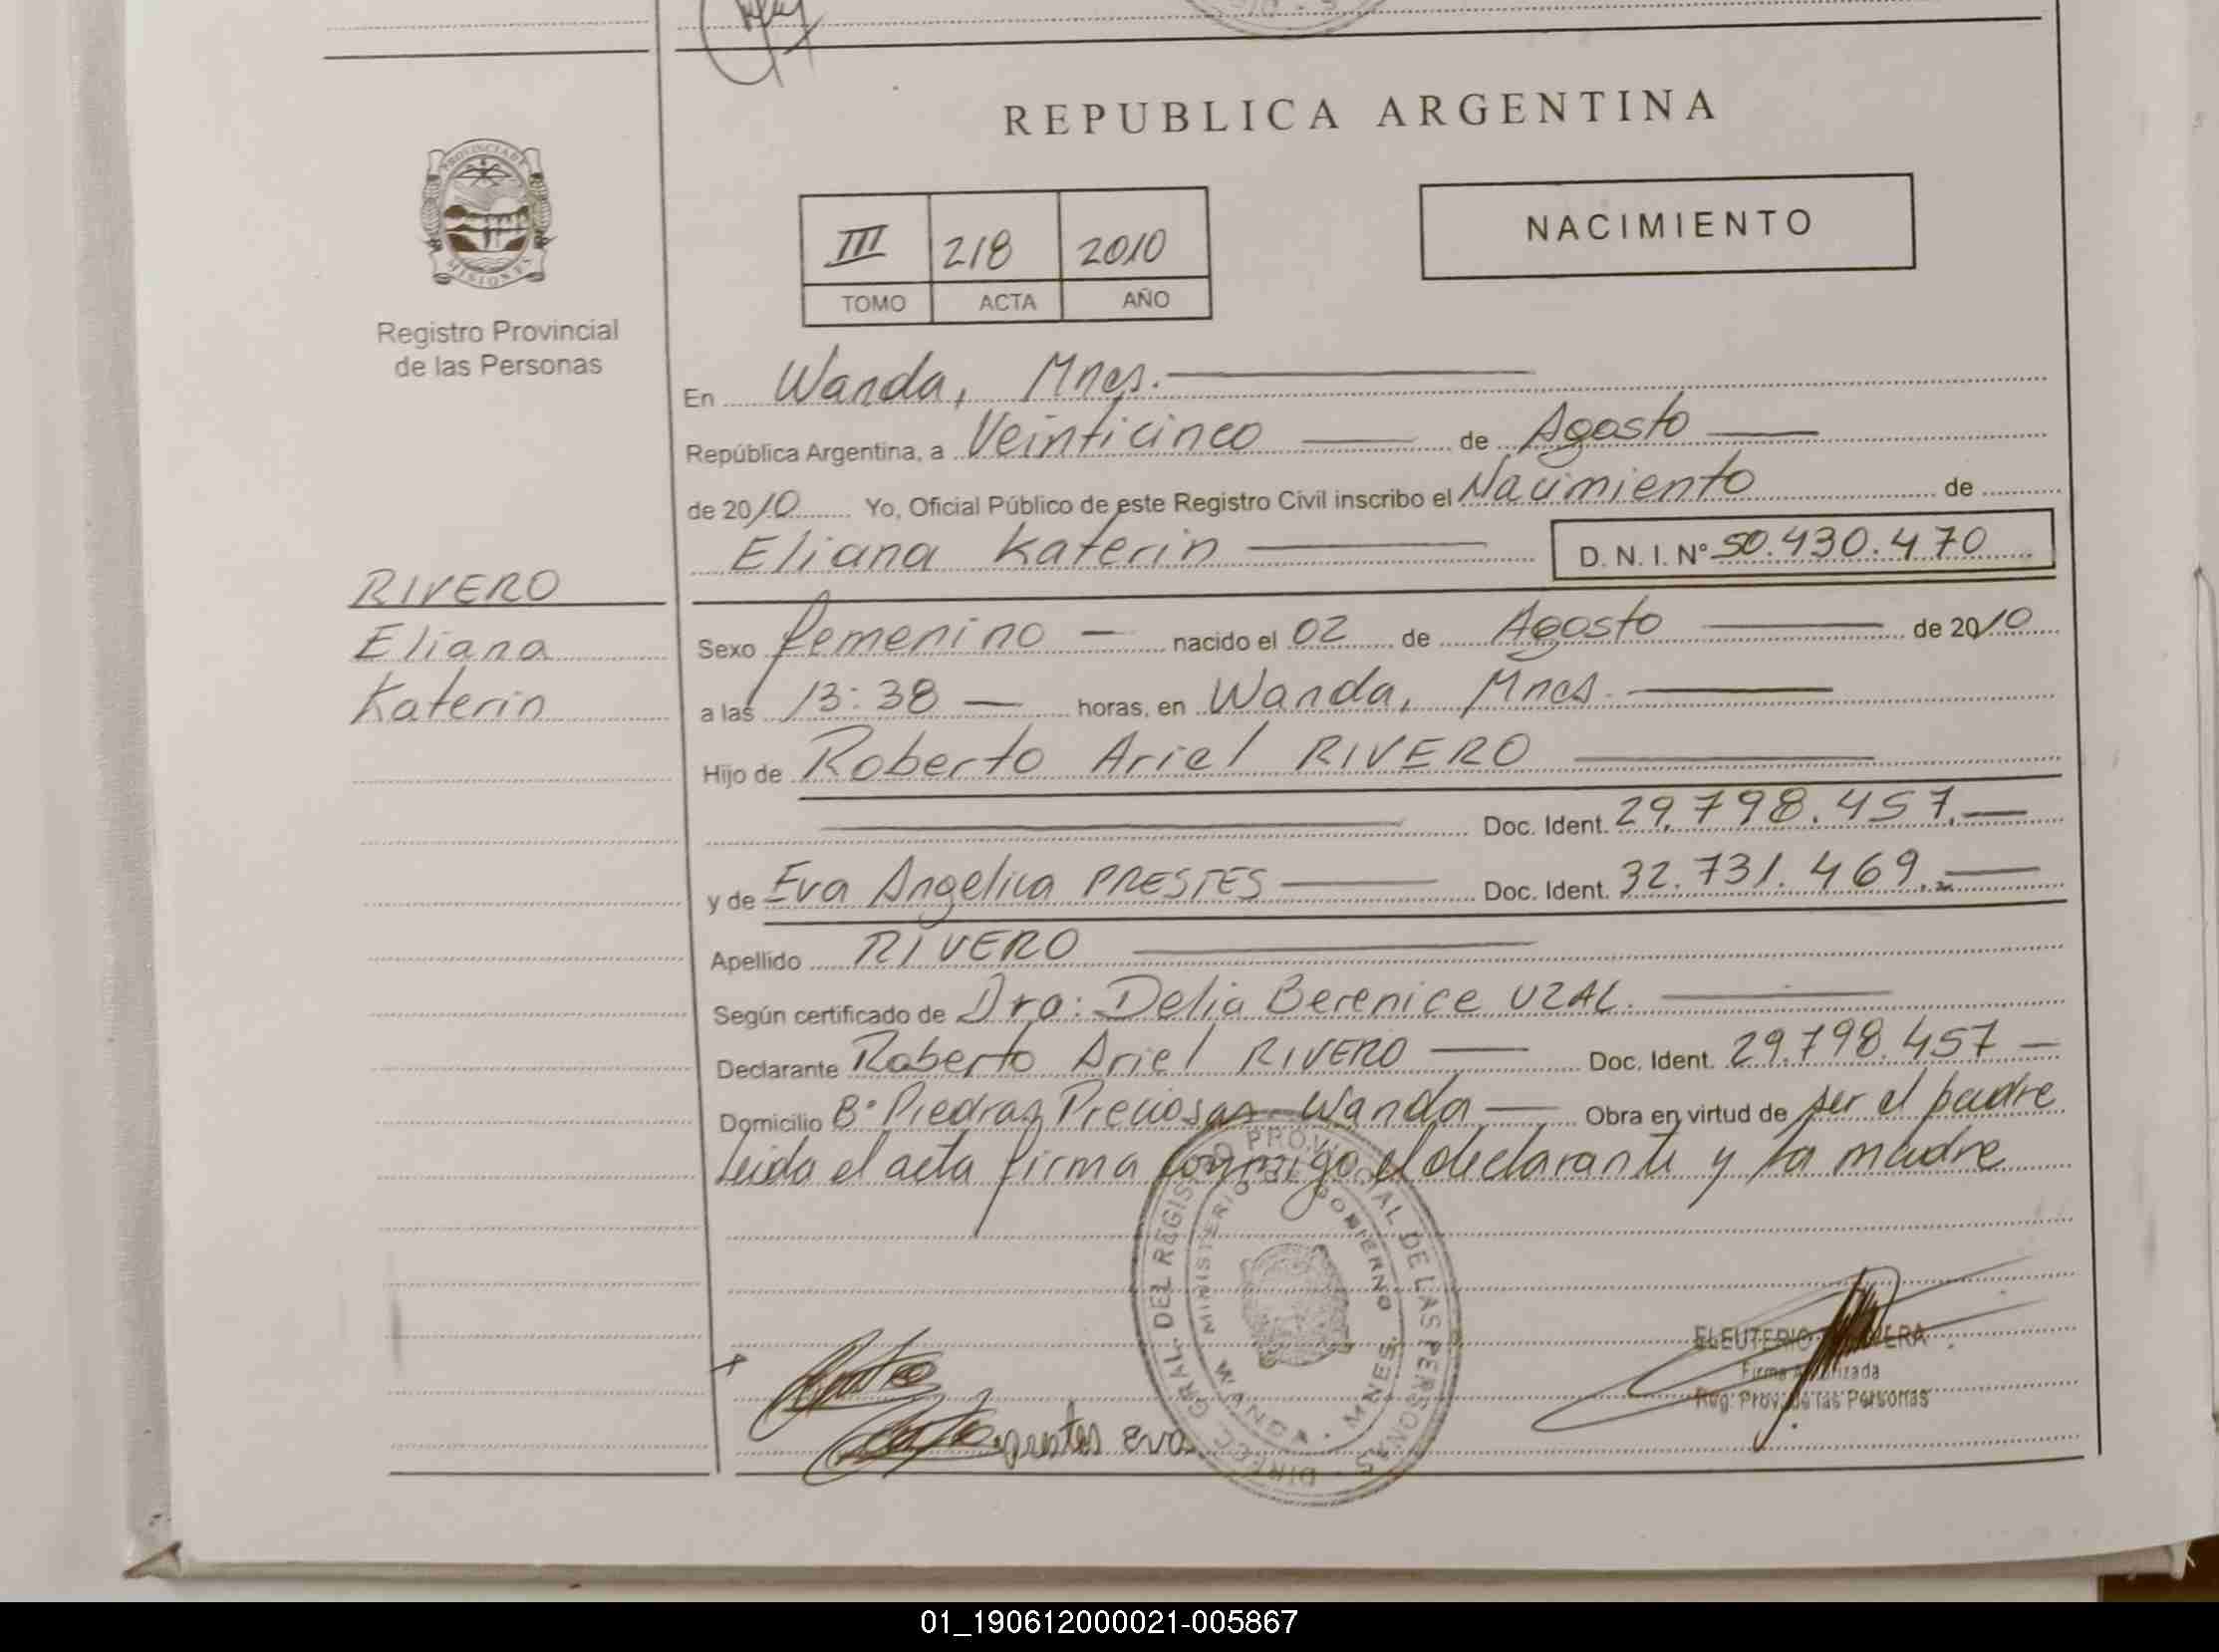 REPUBLICA ARGENTINA
PROVINCIA DE
MISIONES
Registro Provincial
de las Personas
NACIMIENTO
III 218 2010
TOMO ACTA AÑO
En Wanda, Mnes.
República Argentina, a Veinticinco de Agosto
de 2010 Yo, Oficial Público de este Registro Civil inscribo el Nacimiento de
Eliana Katerin D. N. I. Nº 50.430.470
RIVERO
Eliana
Katerin
Sexo femenino nacido el 02 de Agosto de 2010
a las 13:38 horas, en Wanda, Mnes.
Hijo de Roberto Ariel RIVERO
Doc. Ident. 29.798.457.
y de Eva Angelica PRESTES Doc. Ident. 32.731.469.
Apellido RIVERO
Según certificado de Dra: Delia Berenice UZAL.
Declarante Roberto Ariel RIVERO Doc. Ident. 29.798.457
Domicilio Bº Piedras Preciosas - Wanda Obra en virtud de ser el padre
Leida el acta firma conmigo el declarante y la madre
DIRECC. GRAL. DEL REGISTRO PROVINCIAL DE LAS PERSONAS
MINISTERIO DE GOBIERNO
WANDA - MNES.
ELEUTERIO
Firma Autorizada
Reg. Prov. de las Personas
prestes Eva
01_190612000021-005867